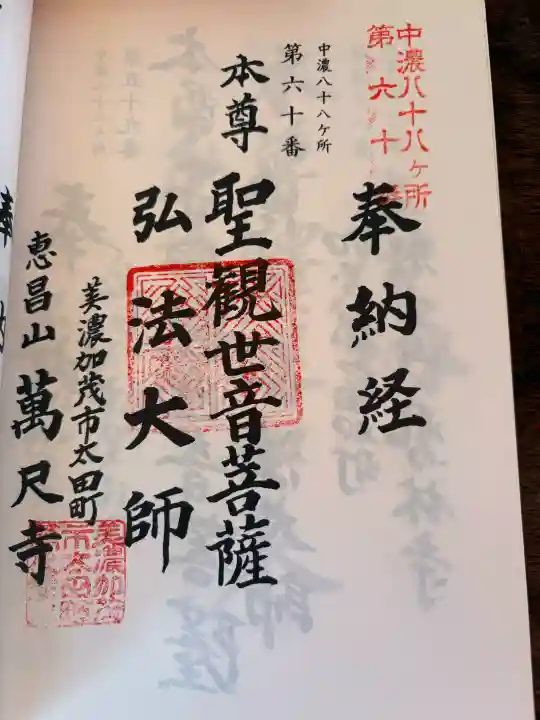 中濃八十八ヶ所
第六十番
奉納経
中濃八十八ヶ所
第六十番
本尊
聖観世音菩薩
弘法大師
美濃加茂市太田町
恵昌山 萬尺寺